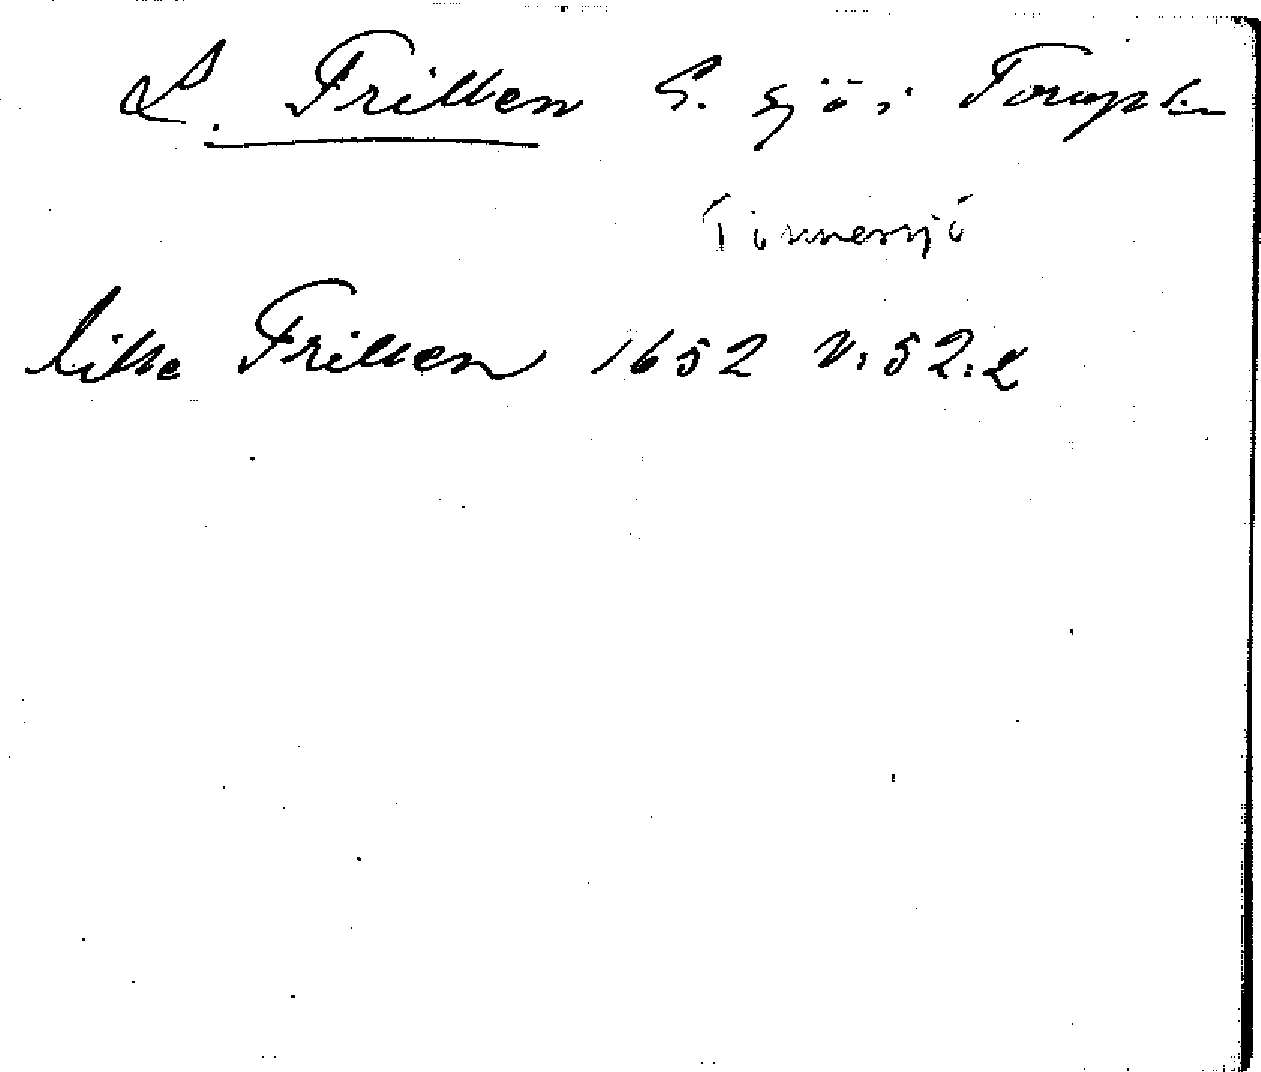 L. Frillen S. sjö i Torups sn
Tönnersjö
lille Frillen 1652 N:52:2